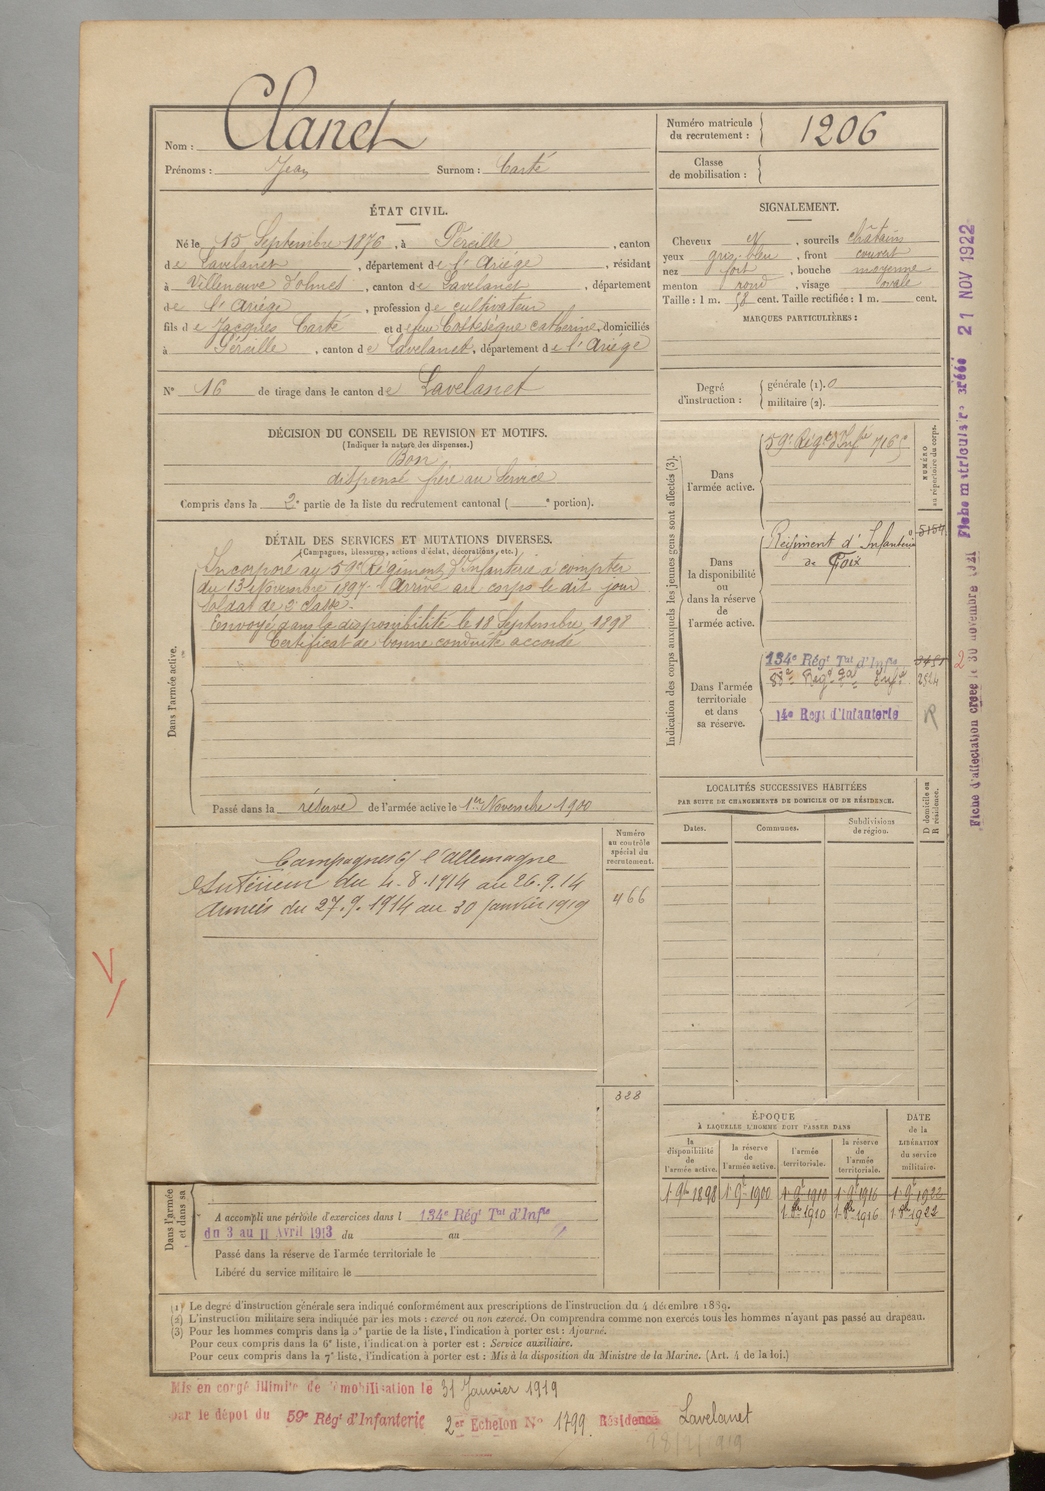 Nom : Clanet
Prénoms : Jean Surnom : Carté
ÉTAT CIVIL.
Né le 15 Septembre 1876, à Péreille, canton
de Lavelanet, département de l'Ariége, résidant
à Villeneuve d'olmes, canton de Lavelanet, département
de l'Ariége, profession de cultivateur
fils de Jacques Carté et de feue Cottesègue Catherine, domiciliés
à Péreille, canton de Lavelanet, département de l'Ariége
N° 16 de tirage dans le canton de Lavelanet
DÉCISION DU CONSEIL DE REVISION ET MOTIFS.
(Indiquer la nature des dispenses.)
Bon
dispensé frère au service
Compris dans la 2e partie de la liste du recrutement cantonal ( e portion).
DÉTAIL DES SERVICES ET MUTATIONS DIVERSES.
(Campagnes, blessures, actions d'éclat, décorations, etc.)
Dans l'armée active.
Incorporé au 59e Régiment d'Infanterie à compter
du 13 Novembre 1897 - Arrivé au corps le dit jour
soldat de 2e classe.
Envoyé dans la disponibilité le 18 Septembre 1898
Certificat de bonne conduite accordé
Passé dans la réserve de l'armée active le 1er Novembre 1900
Numéro
au contrôle
spécial du
recrutement.
466
328
Campagnes c/ l'Allemagne
Intérieur du 4.8.1914 au 26.9.14
Armées du 27.9.1914 au 30 janvier 1919
Dans l'armée
et dans sa
A accompli une période d'exercices dans l 134e Régt Tal d'Infie
du 3 au 11 Avril 1913 du au
Passé dans la réserve de l'armée territoriale le
Libéré du service militaire le
Numéro matricule
du recrutement : 1206
Classe
de mobilisation :
SIGNALEMENT.
Cheveux N, sourcils châtains
yeux gris-bleu, front couvert
nez fort, bouche moyenne
menton rond, visage ovale
Taille : 1 m. 58 cent. Taille rectifiée : 1 m. cent.
MARQUES PARTICULIÈRES :
Degré
d'instruction :
générale (1). 0
militaire (2).
Indication des corps auxquels les jeunes gens sont affectés (3).
NUMÉRO
au répertoire du corps.
Dans
l'armée active.
59e Régt d'Infie 7165
Dans
la disponibilité
ou
dans la réserve
de
l'armée active.
Régiment d'Infanterie
de Foix
5154
Dans l'armée
territoriale
et dans
sa réserve.
134e Régt Tal d'Infie
2524
14e Regt d'Infanterie
R
2
LOCALITÉS SUCCESSIVES HABITÉES
PAR SUITE DE CHANGEMENTS DE DOMICILE OU DE RÉSIDENCE.
Dates. Communes. Subdivisions
de région.
D domicile ou
R résidence.
ÉPOQUE
À LAQUELLE L'HOMME DOIT PASSER DANS
la
disponibilité
de
l'armée active.
la réserve
de
l'armée active.
l'armée
territoriale.
la réserve
de
l'armée
territoriale.
DATE
de la
LIBÉRATION
du service
militaire.
1 9bre 1898 1 9bre 1900 1 9bre 1910 1 9bre 1916 1 9bre 1922
(1) Le degré d'instruction générale sera indiqué conformément aux prescriptions de l'instruction du 4 décembre 1889.
(2) L'instruction militaire sera indiquée par les mots : exercé ou non exercé. On comprendra comme non exercés tous les hommes n'ayant pas passé au drapeau.
(3) Pour les hommes compris dans la 5e partie de la liste, l'indication à porter est : Ajourné.
Pour ceux compris dans la 6e liste, l'indication à porter est : Service auxiliaire.
Pour ceux compris dans la 7e liste, l'indication à porter est : Mis à la disposition du Ministre de la Marine. (Art. 4 de la loi.)
Mis en congé illimité de démobilisation le 31 Janvier 1919
par le dépôt du 59e Régt d'Infanterie 2e Echelon N° 1799. Résidence Lavelanet
Fiche matricule créée 21 NOV 1922
Fiche d'affectation créée le 30 novembre